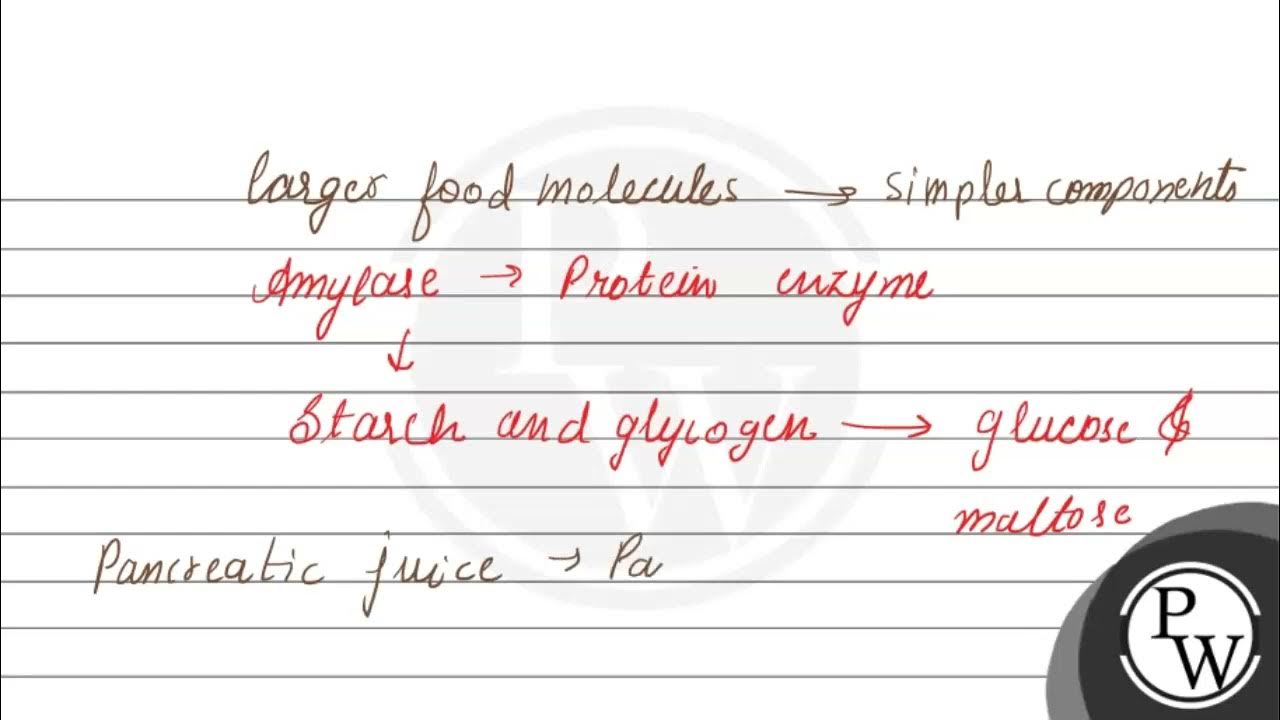 larger food molecules → simpler components
Amylase → Protein enzyme
↓
Starch and glycogen → glucose &
maltose
Pancreatic juice → Pa
PW
PW